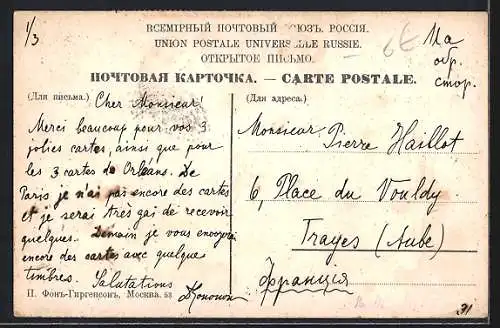 1/3
ВСЕМІРНЫЙ ПОЧТОВЫЙ СОЮЗЪ. РОССІЯ.
UNION POSTALE UNIVERSELLE RUSSIE.
ОТКРЫТОЕ ПИСЬМО.
ПОЧТОВАЯ КАРТОЧКА. — CARTE POSTALE.
На
обр.
стор.
(Для письма.)
Cher Monsieur!
Merci beaucoup pour vos 3
jolies cartes, ainsi que pour
les 3 cartes de Orleans. De
Paris je n'ai pas encore des cartes
et je serai très gai de recevoir
quelques. Demain je vous envoyrai
encore des cartes avec quelque
timbres. Salutations
П. Фонъ-Гиргенсонъ, Москва. 53
(Для адреса.)
Monsieur Pierre Haillot
6, Place du Vouldy
Trayes (Aube)
Франція
31